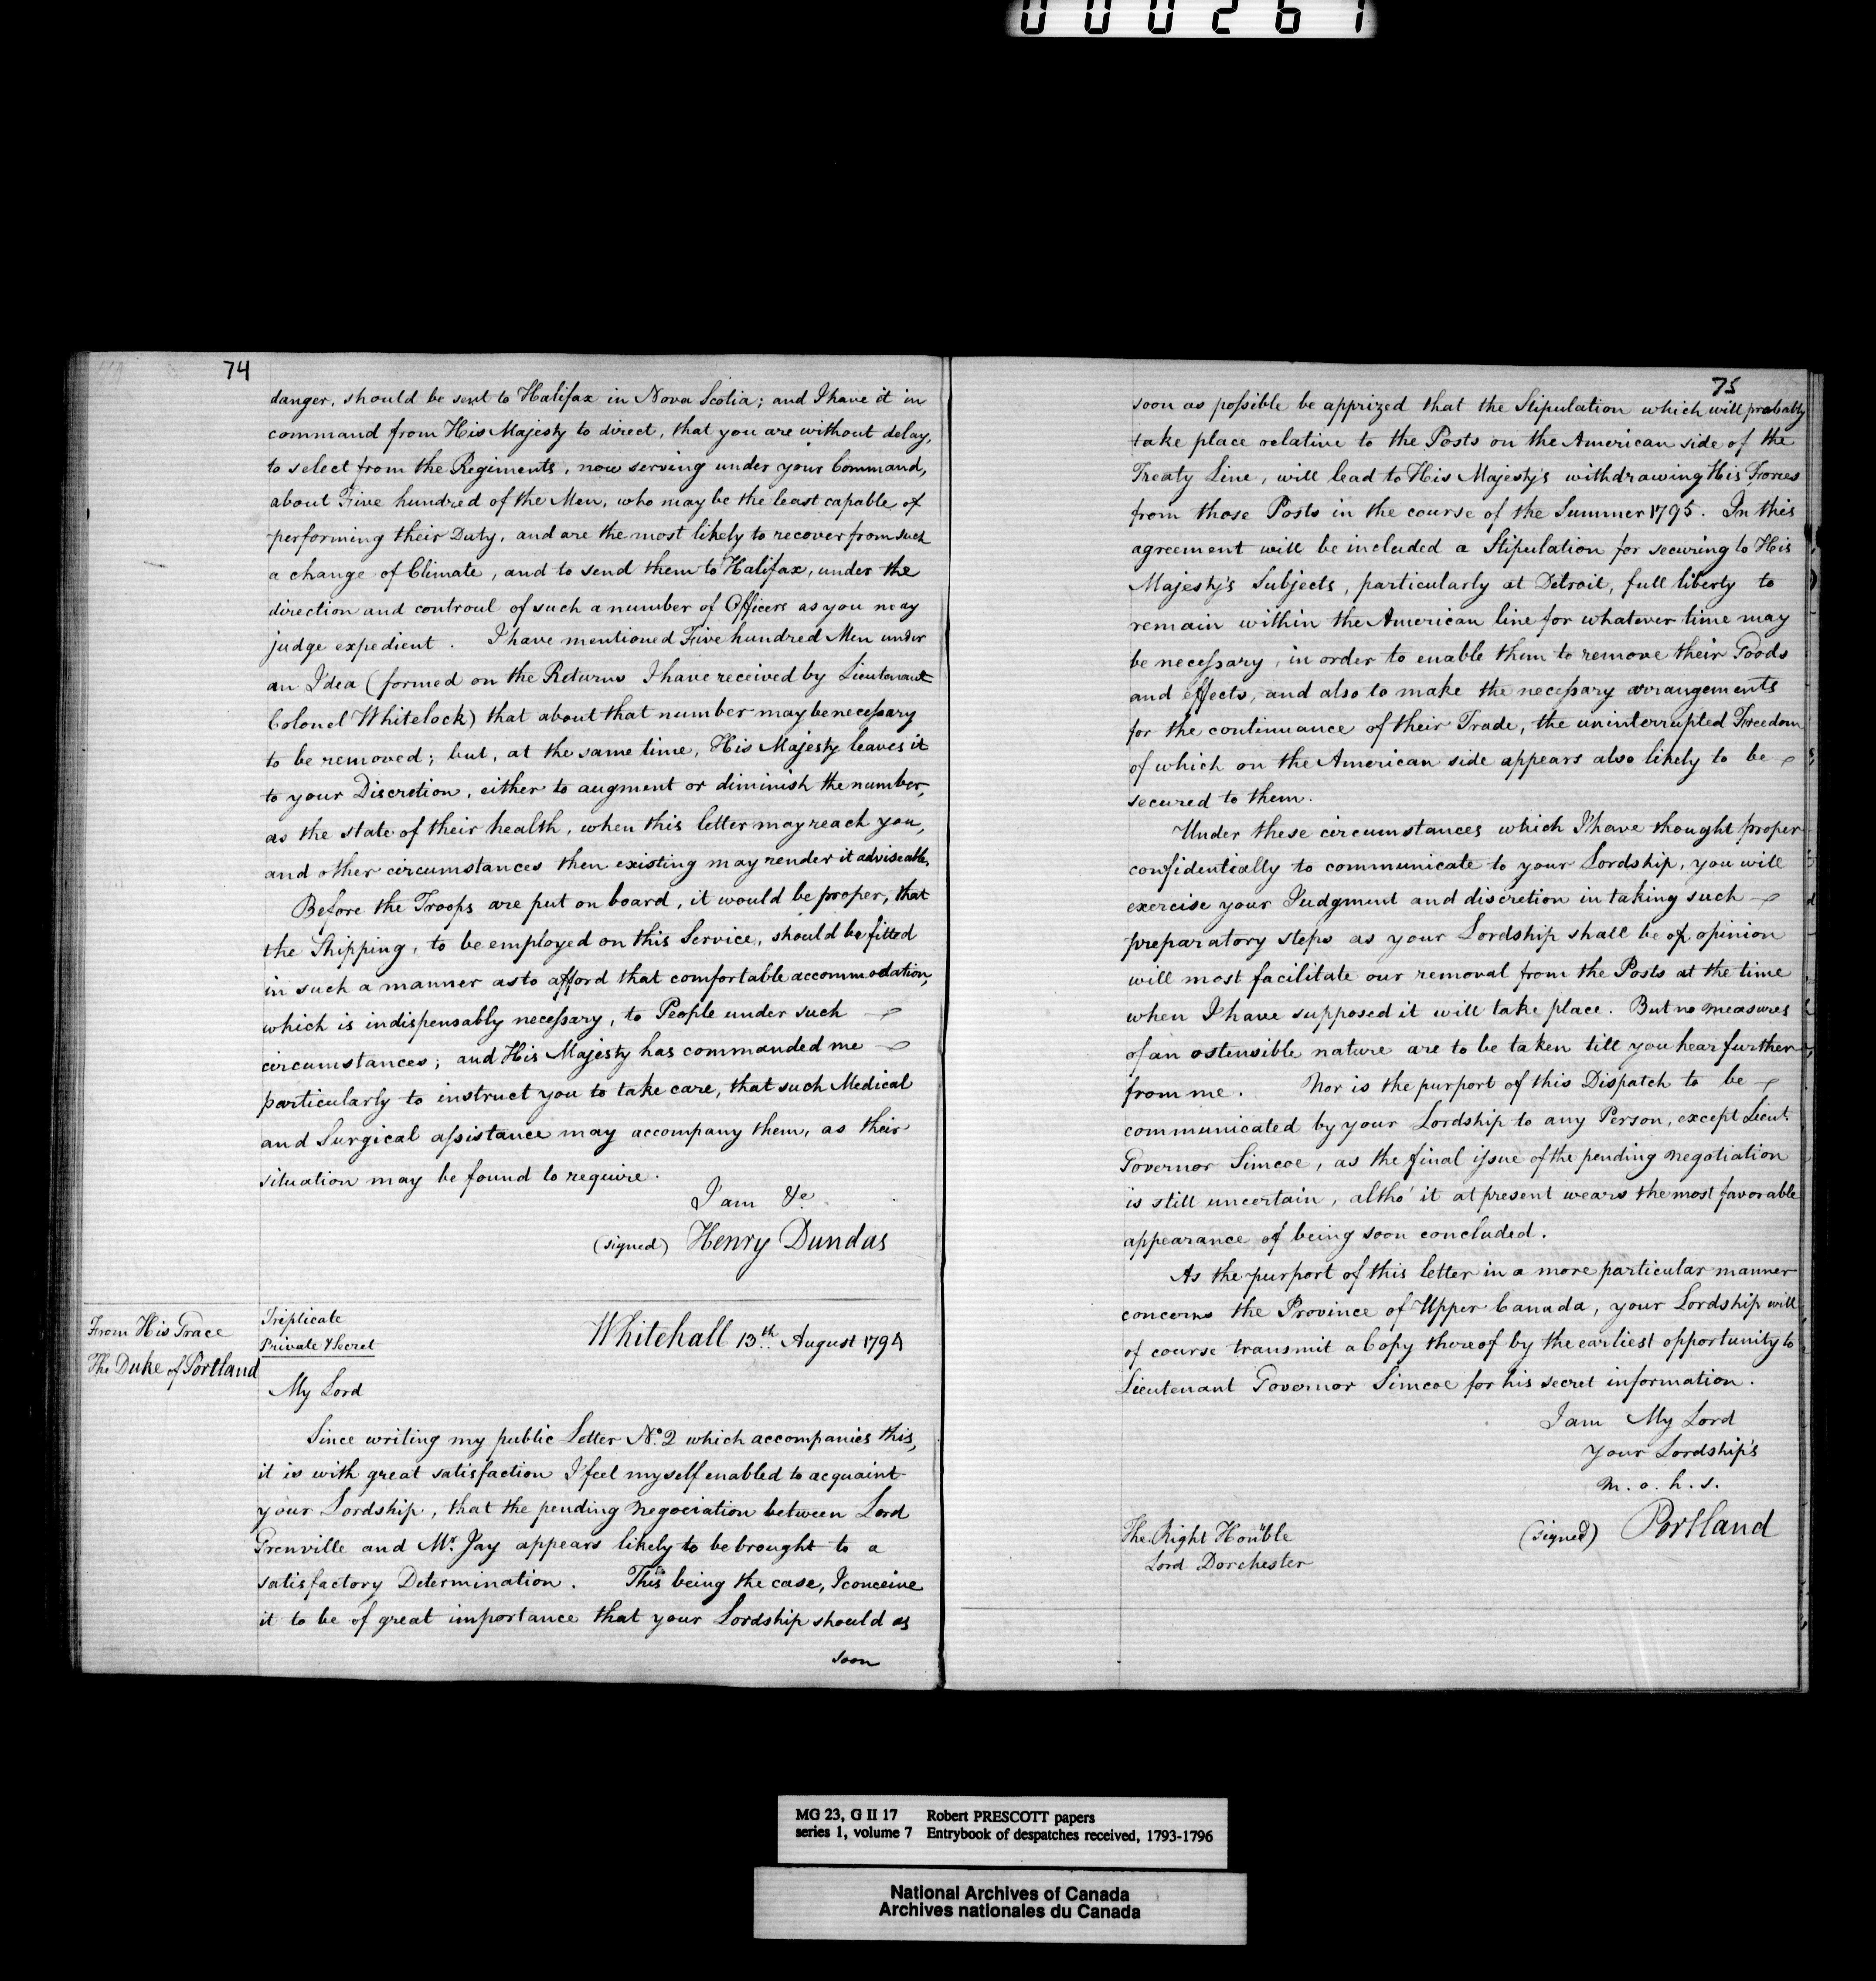 000267
74
danger, should be sent to Halifax in Nova Scotia; and I have it in
command from His Majesty to direct, that you are without delay,
to select from the Regiments, now serving under your Command,
about Five hundred of the Men, who may be the least capable, of
performing their Duty, and are the most likely to recover from such
a change of Climate, and to send them to Halifax, under the
direction and controul of such a number of Officers as you may
judge expedient. I have mentioned Five hundred Men under
an Idea (formed on the Returns I have received by Lieutenant
Colonel Whitelock) that about that number may be necessary
to be removed; but, at the same time, His Majesty leaves it
to your Discretion, either to augment or diminish the number,
as the state of their health, when this letter may reach you,
and other circumstances then existing may render it adviseable.
Before the Troops are put on board, it would be proper, that
the Shipping, to be employed on this Service, should be fitted
in such a manner as to afford that comfortable accommodation,
which is indispensably necessary, to People under such
circumstances; and His Majesty has commanded me
particularly to instruct you to take care, that such Medical
and Surgical assistance may accompany them, as their
situation may be found to require.
I am &c.
(signed) Henry Dundas
From His Grace
The Duke of Portland
Triplicate
Private & Secret
Whitehall 13th August 1794
My Lord
Since writing my public Letter No. 2 which accompanies this,
it is with great satisfaction I feel myself enabled to acquaint
your Lordship, that the pending Negociation between Lord
Grenville and Mr. Jay appears likely to be brought to a
satisfactory Determination. This being the case, I conceive
it to be of great importance that your Lordship should as
soon
75
soon as possible be apprized that the Stipulation which will probably
take place relative to the Posts on the American side of the
Treaty Line, will lead to His Majesty's withdrawing His Forces
from those Posts in the course of the Summer 1795. In this
agreement will be included a Stipulation for securing to His
Majesty's Subjects, particularly at Detroit, full liberty to
remain within the American line for whatever time may
be necessary, in order to enable them to remove their Goods
and effects, and also to make the necessary arrangements
for the continuance of their Trade, the uninterrupted Freedom
of which on the American side appears also likely to be
secured to them.
Under these circumstances which I have thought proper
confidentially to communicate to your Lordship, you will
exercise your Judgment and discretion in taking such
preparatory steps as your Lordship shall be of opinion
will most facilitate our removal from the Posts at the time
when I have supposed it will take place. But no measures
of an ostensible nature are to be taken till you hear further
from me. Nor is the purport of this Dispatch to be
communicated by your Lordship to any Person, except Lieut.
Governor Simcoe, as the final issue of the pending negotiation
is still uncertain, altho' it at present wears the most favorable
appearance of being soon concluded.
As the purport of this letter in a more particular manner
concerns the Province of Upper Canada, your Lordship will
of course transmit a Copy thereof by the earliest opportunity to
Lieutenant Governor Simcoe for his secret information.
I am My Lord
Your Lordship's
m. o. h. s.
(signed) Portland
The Right Honble
Lord Dorchester
MG 23, G II 17 Robert PRESCOTT papers
series 1, volume 7 Entrybook of despatches received, 1793-1796
National Archives of Canada
Archives nationales du Canada